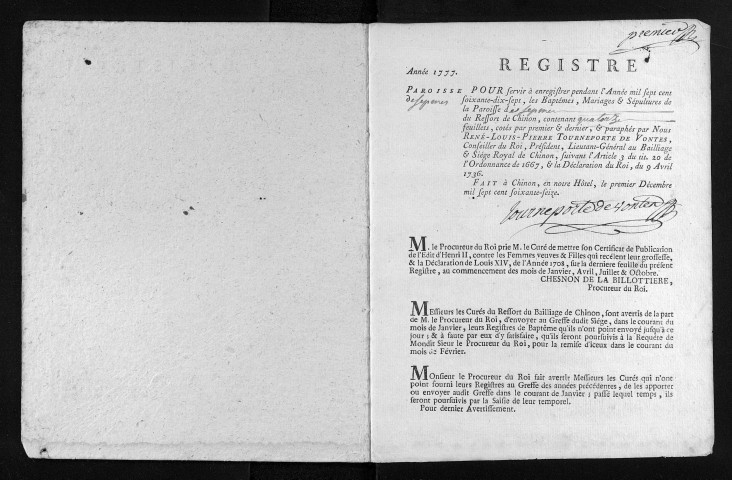 premier
REGISTRE
Année 1777.
PAROISSE
de sepmes
POUR servir à enregistrer pendant l'Année mil sept cent
soixante-dix-sept, les Baptêmes, Mariages & Sépultures de
la Paroisse de sepmes
du Ressort de Chinon, contenant quatorze
feuillets, cotés par premier & dernier, & paraphés par Nous
RENÉ-LOUIS-PIERRE TOURNEPORTE DE VONTES,
Conseiller du Roi, Président, Lieutant-Général au Bailliage
& Siége Royal de Chinon, suivant l'Article 3 du tit. 20 de
l'Ordonnance de 1667, & la Déclaration du Roi, du 9 Avril
1736.
FAIT à Chinon, en notre Hôtel, le premier Décembre
mil sept cent soixante-seize.
Tourneporte de Vontes
M. le Procureur du Roi prie M. le Curé de mettre son Certificat de Publication
de l'Edit d'Henri II, contre les Femmes veuves & Filles qui recélent leur grossesse,
& la Déclaration de Louis XIV, de l'Année 1708, sur la derniere feuille du présent
Registre, au commencement des mois de Janvier, Avril, Juillet & Octobre.
CHESNON DE LA BILLOTTIERE,
Procureur du Roi.
MEssieurs les Curés du Ressort du Bailliage de Chinon, sont avertis de la part
de M. le Procureur du Roi, d'envoyer au Greffe dudit Siége, dans le courant du
mois de Janvier, leurs Registres de Baptême qu'ils n'ont point envoyé jusqu'à ce
jour : & à faute par eux d'y satisfaire, qu'ils seront poursuivis à la Requête de
Mondit Sieur le Procureur du Roi, pour la remise d'iceux dans le courant du
mois de Février.
MOnsieur le Procureur du Roi fait avertir Messieurs les Curés qui n'ont
point fourni leurs Registres au Greffe des années précédentes, de les apporter
ou envoyer audit Greffe dans le courant de Janvier ; passé lequel temps , ils
seront poursuivis par la Saisie de leur temporel.
Pour dernier Avertissement.